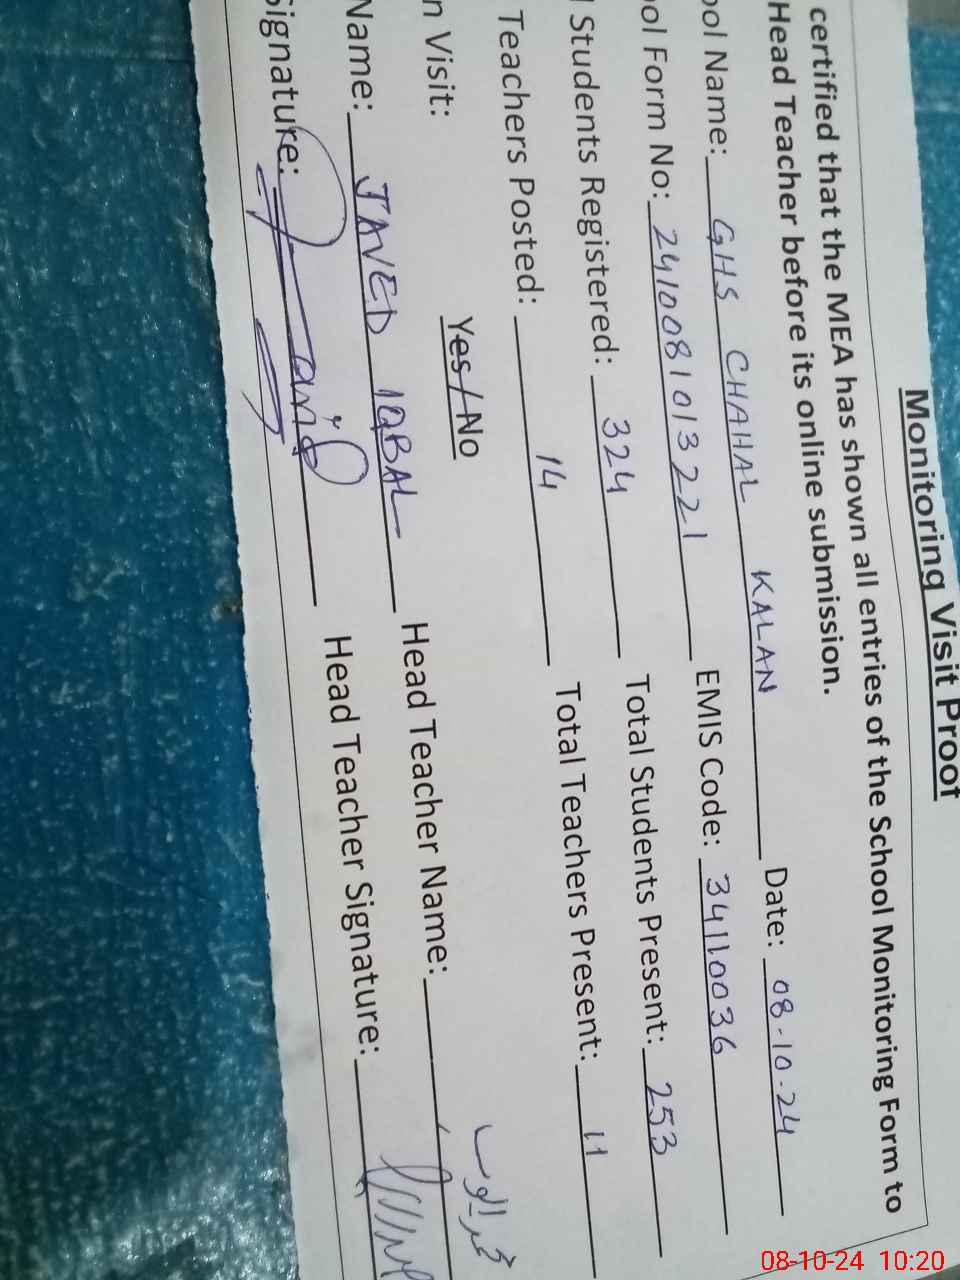 Monitoring Visit Proof
certified that the MEA has shown all entries of the School Monitoring Form to
Head Teacher before its online submission.
ool Name: GHS CHAHAL KALAN Date: 08-10-24
ool Form No: 241008101322 1 EMIS Code: 34110036
l Students Registered: 324 Total Students Present: 253
Teachers Posted: 14 Total Teachers Present: 11
n Visit: Yes / No
Name: JAVED IQBAL Head Teacher Name:
Signature: Head Teacher Signature:
08-10-24 10:20